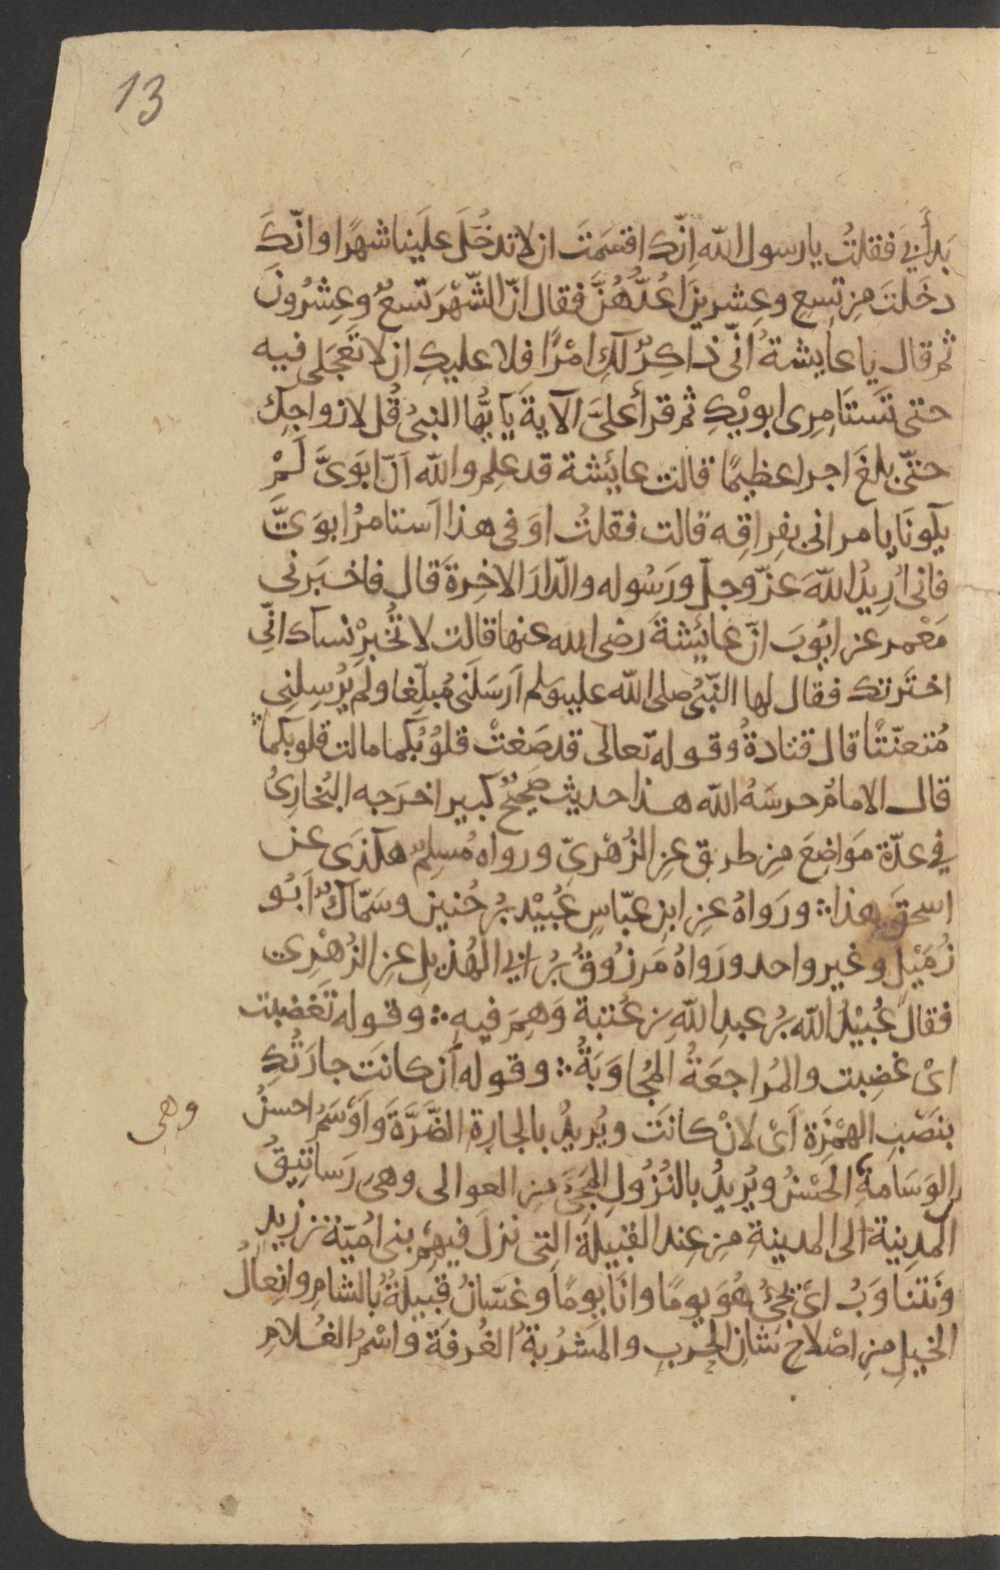 13
بَدأَنِي فقلتُ يا رسول الله اِنّك اقسَمتَ ان لا تدخُلَ علَينا شهرًا وانّكَ
دخَلتَ مِن تسعٍ وعِشرين اعُدُّهُنَّ فقال انّ الشّهْرَ تسعٌ وعِشرُونَ
ثم قال يا عايشةُ انّى ذاكِرٌ لكِ امْرًا فلا عليكِ ان لا تَعجَلى فيه
حتى تَستَامِرِى ابويْكِ ثم قرأ علىَّ الآية يَآيُّها النبىُ قُل لازواجك
حتّى بلَغَ اجرا عظيمًا قالت عائشة قد عَلِم والله اَنّ ابَوَىَّ لَمْ
يكونَا يامرانى بفِراقِه قالت فقلتُ اوَفى هذا اَستامرُ ابوَىَّ
فانى ارِيدُ اللهَ عزّ وجلّ ورَسُوله والدّارَ الاخِرةَ قال فاخبَرنى
مَعْمر عن ايّوبَ انّ عائشةَ رضى الله عنها قالت لا تُخبِرْ نساك انّى
اختَرتك فقال لها النّبىُ صلى الله عليه وسلم اَرسَلَنى مُبلِّغا ولم يُرسِلنِى
مُتعنّتًا قال قتادةُ وقوله تعالى قد صَغتْ قلوُبُكما مالت قلوبكما
قال الامامُ حرسَهُ الله هذا حديث صَحيحٌ كبير اخرَجه البُخارِىُ
فى عدّة مَواضِعَ مِن طريق عن الزُهْرِىّ ورواه مُسلِمٌ هكذَى عن
اسحقَ بهذا ورَواهُ عن ابنِ عبّاسٍ عُبيْد بن حُنين وسَمّاكٌ اَبُو
زُمَيْلٍ وغير واحد ورَواهُ مَرزُوقُ بنُ ابِى الهُذيلِ عن الزُهْرِى
فقال عُبيْدُ اللهَ بنُ عبدِ اللهِ بن عُتبة وَهِمَ فيهِ وقوله تَغضبت
اىْ غضِبت والمُراجعَةُ المجُاوَبَةُ وقوله اَن كانَت جارَتُكِ
بنَصْبِ الهمْزَة اَىْ لانْ كانَت ويُرِيدُ بالجارِة الضَرَّةَ وَاَوْسَمُ احسنُ
وهى
الوَسَامةِ الحُسْنُ ويُرِيدُ بالنُزُولِ المجَىَ مِن العوالى وهىَ رَساتِيقُ
المدِينة الى المدينةِ مِن عِندِ القبيلَة التِى نزلَ فيهِم بنى امُيّة بن زيد
ونَتناوَبُ اىْ يجَىُ هُوَ يومًا وانَا يومًا وغسّانُ قبيلةٌ بالشامِ وانعالُ
الخيلِ مِن اصْلاح شانِ الحرب والمَشرُبةُ الغُرفَة واسْمُ الغُلامِ